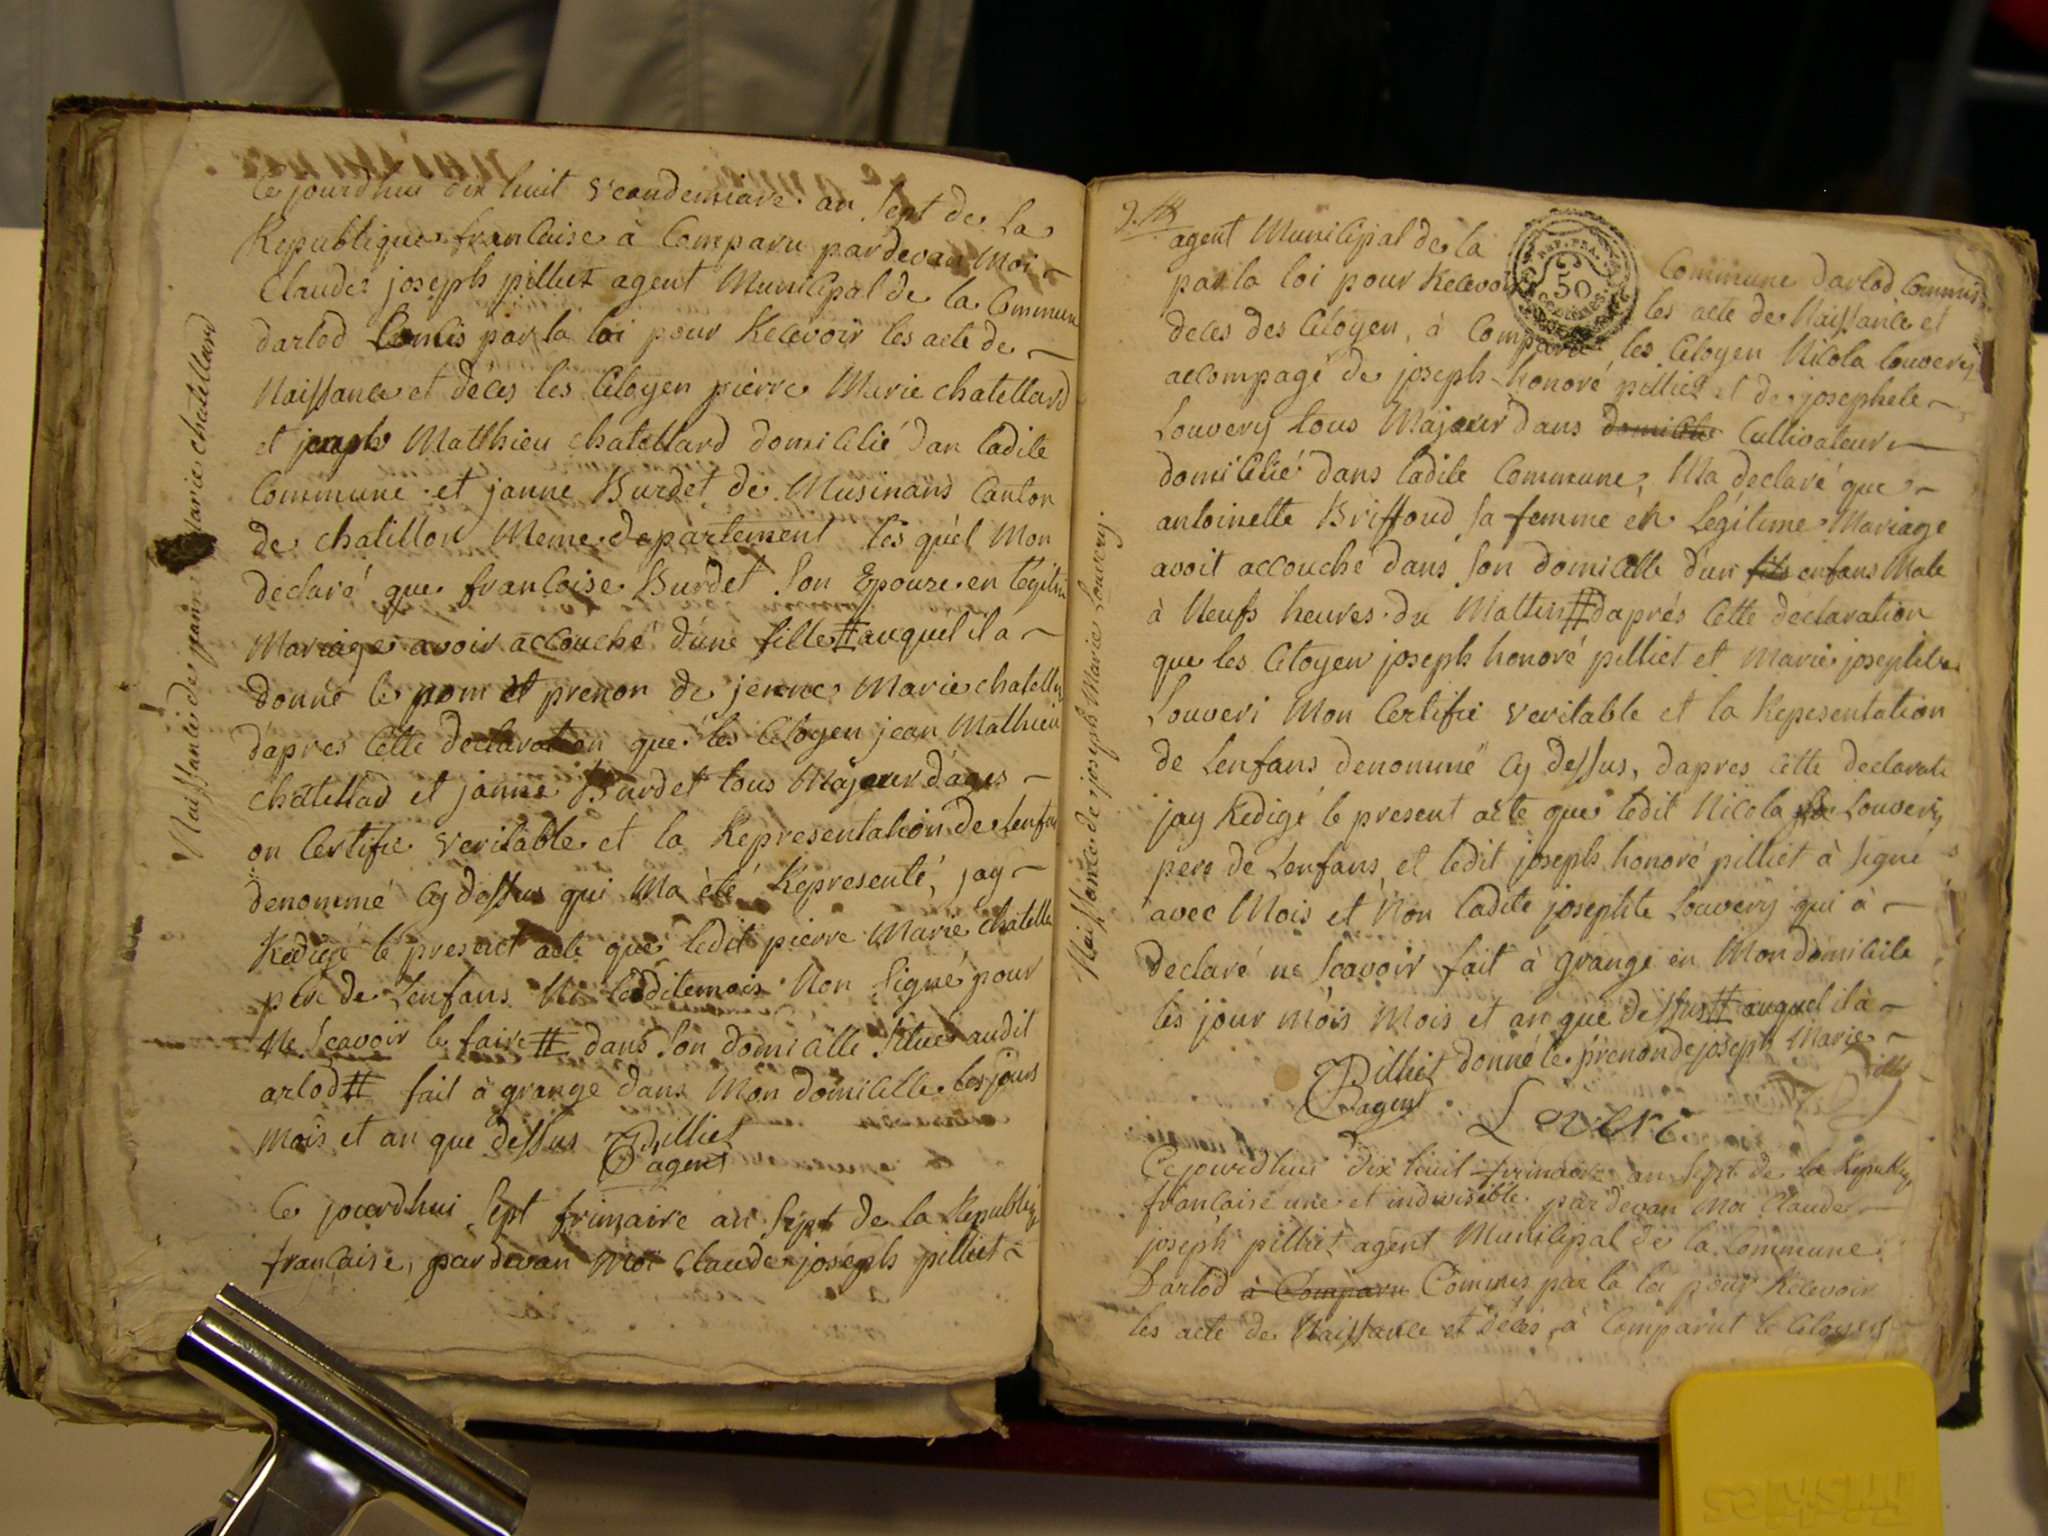 Naissance de janne Marie chatellard
Ce jourdhui dix huit vendemiare an Sept de la
Republique francaise à Comparu pardevan Moi
Claude joseph pilliet agent Municipal de la Commune
darlod Comis par la loi pour Recevoir les acte de
Naissance et déces les Citoyen pierre Marie chatellard
et joseph Matthieu chatellard domicilié dan ladite
Commune et janne Burdet de Musinans Canton
de chatillon Meme departement les quel Mon
déclaré que francoise Burdet Son Epouze en légitim
Mariage avoir accouché dune fille # auquél il a
donné le nom et prenon de jenne Marie chatell
dapres Cette declaration que les Citoyen jean Mathieu
chatellad et janne Burdet tous Majeur dages
on Certifie veritable et la Representation de Lenfan
denommé Cy dessus qui Ma été Representé, jay
Redigé le present acte que ledit pierre Marie chatella
pere de Lenfans Ni Non Signé pour
Ne Scavoir le faire # dans Son domicille Situé audit
arlod # fait à grange dans Mon domicille les jours
Mois et an que dessus Pilliet
agent
Ce jourdhui Sept frimaire an Sept de la Republiq
francaise, pardevan moi Claude joseph pilliet
agent Municipal de la Commune darlod Commis
REP. FRA.
50
par la loi pour Recevoir les acte de Naissance et
déces des Citoyen, à Comparu les Citoyen Nicola Louvery
accompagé de joseph honoré pilliet et de josephete
Louvery tous Majeur dans domicilie Cultivateur
domicilié dans ladite Commune, Ma declaré que
antoinette Briffoud Sa femme en Légitime Mariage
avoit accouché dans Son domicille dun fils enfans Male
à Neufs heures du Mattin # daprés Cette déclaration
que les Citoyen joseph honoré pilliet et Marie josephte
Louveri Mon Certifie veritable et la Repesentation
de Lenfans denommé Cy dessus, dapres Cette declarati
jay Redigé le present acte que ledit Nicola Louvery
pere de Lenfans et ledit joseph honoré pilliet à Signé
avec Mois et Non ladite josephte Louvery qui à
declaré ne Scavoir fait à grange en Mon domicile
les jour mois Mois et an que dessus # auquel il à
donné le prénon de joseph Marie
Pilliet
agent
Loveri
Naissance de joseph Marie Louvery.
Ce jourdhui dix huit frimaire an Sept de la Republiq
francaise une et indivisible pardevan Moi Claude
joseph pilliet agent Municipal de la Commune
Darlod à Comparu Commis par la loi pour Recevoir
les acte de Naissance et déces à Comparut le Citoyen